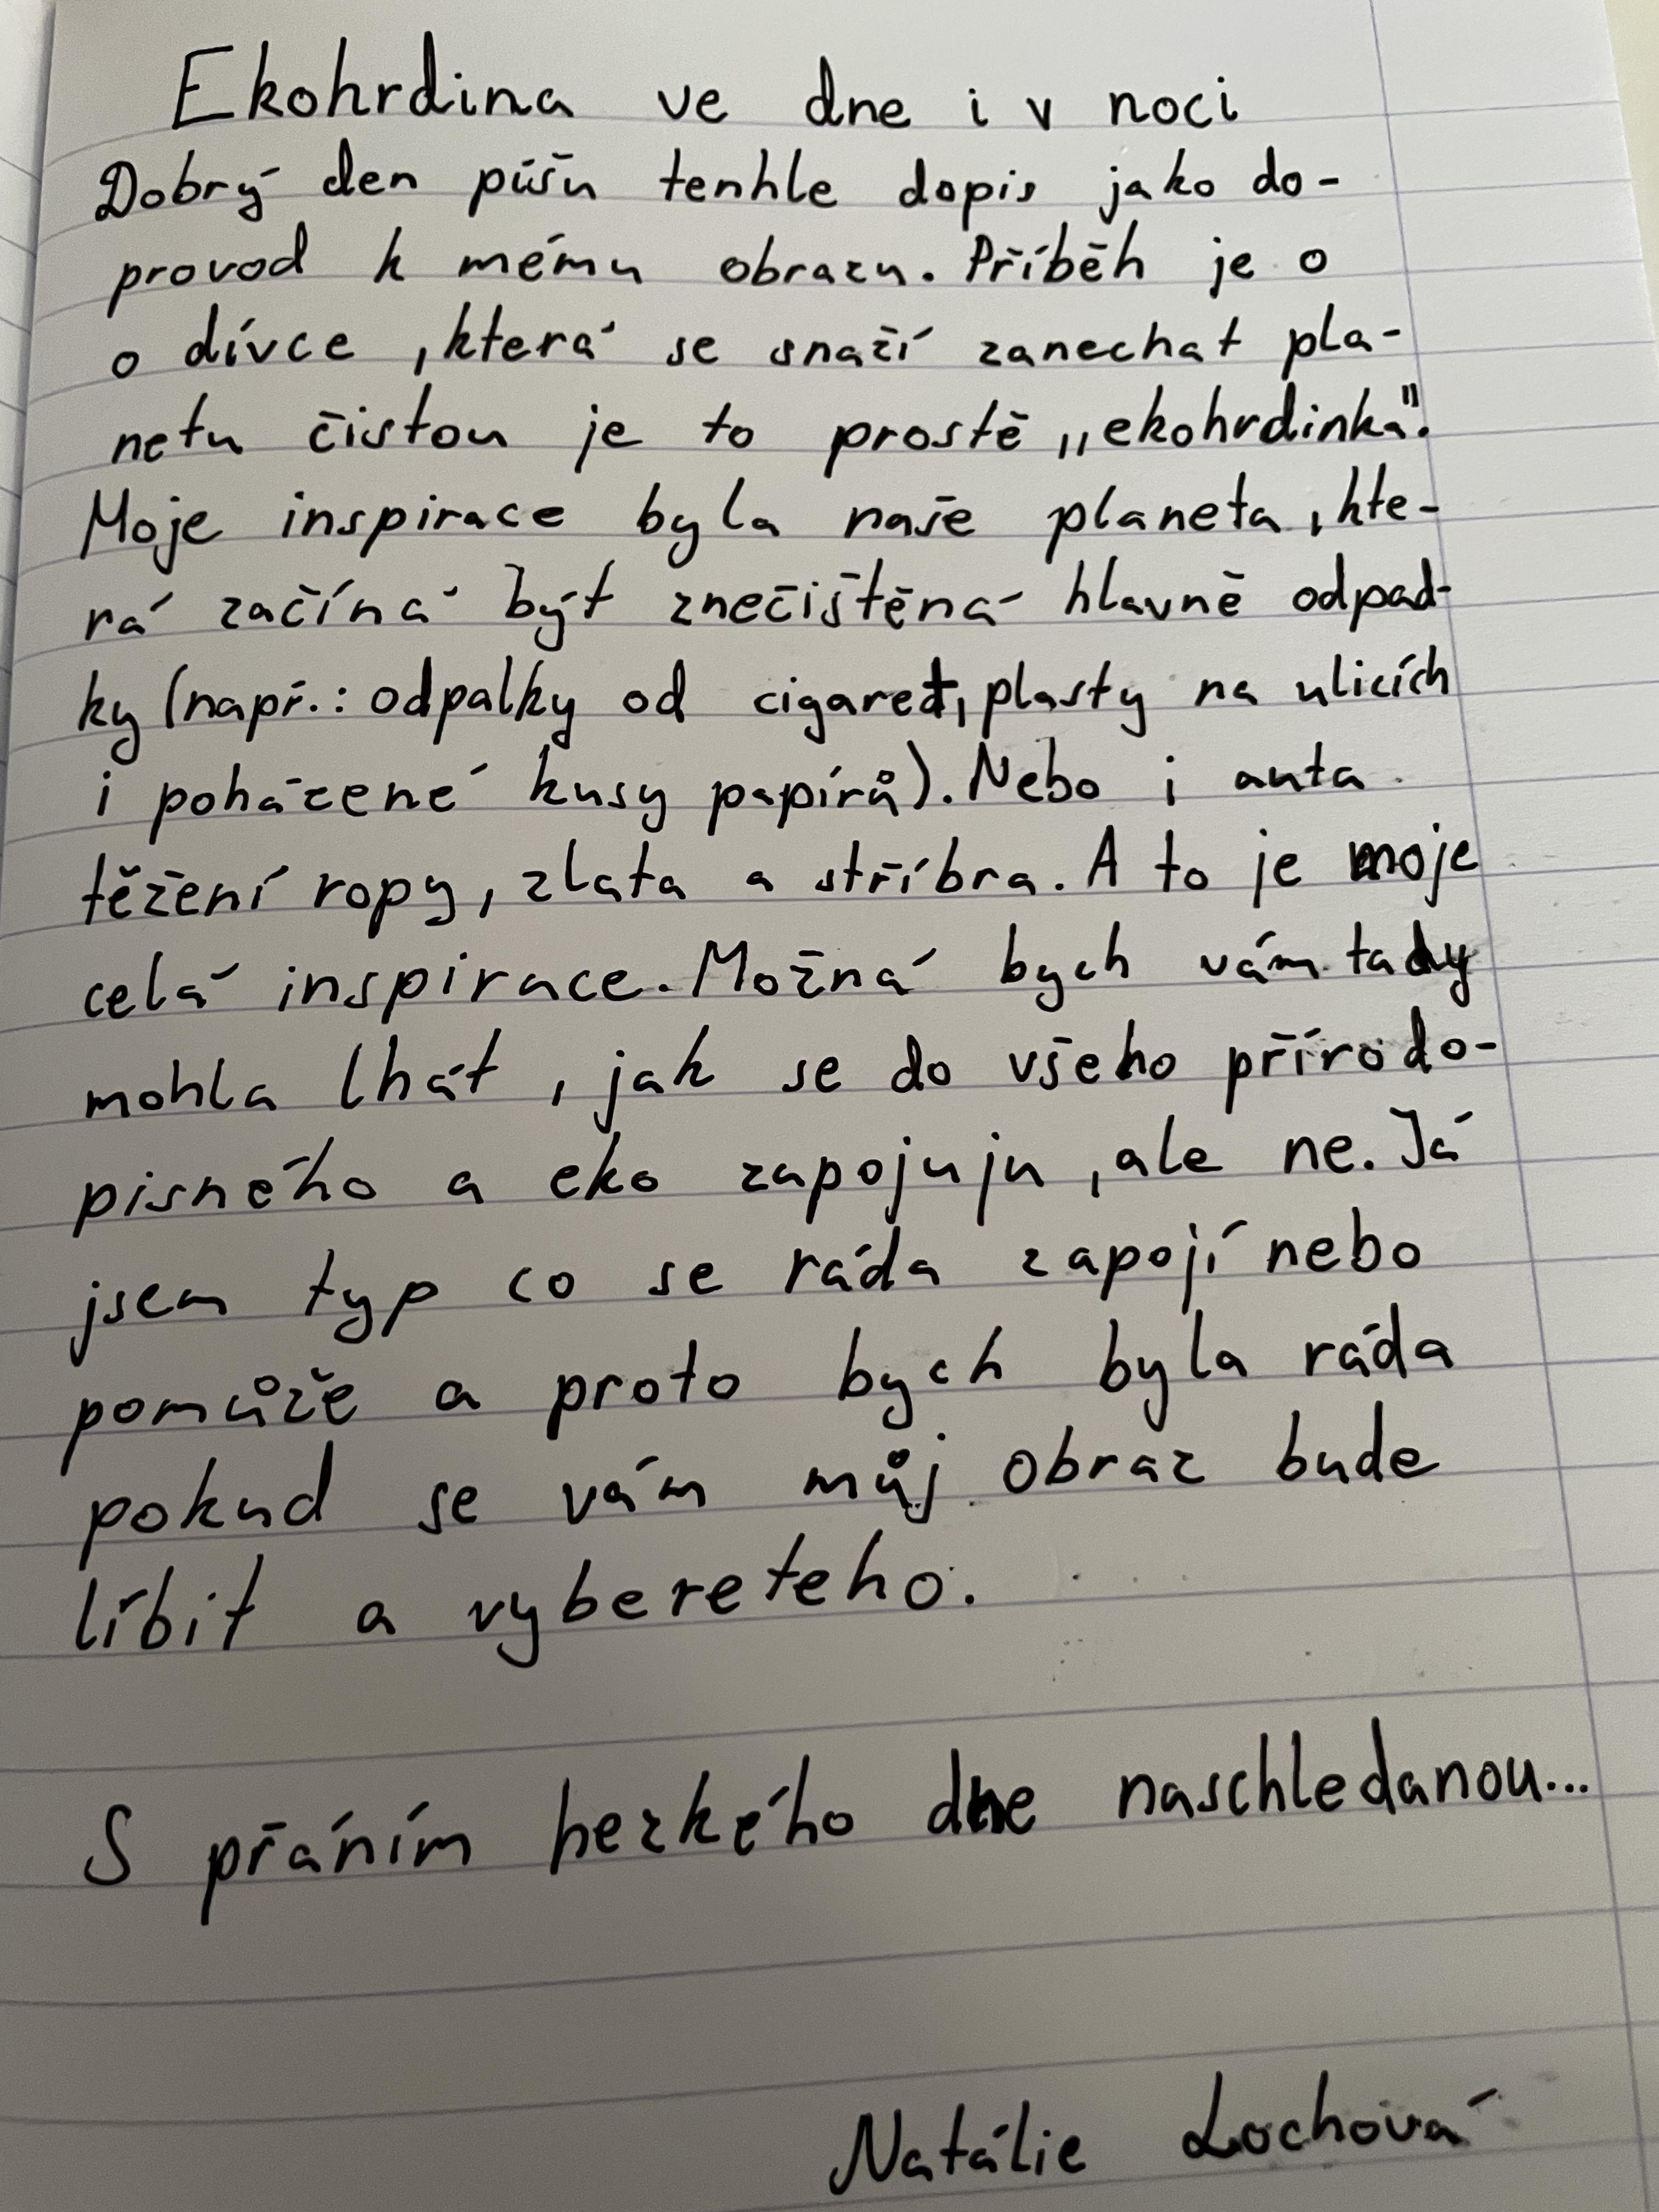 Ekohrdina ve dne i v noci
Dobrý den píšu tenhle dopis jako do-
provod k mému obrazu. Příběh je o
o dívce, která se snaží zanechat pla-
netu čistou je to prostě „ekohrdinka".
Moje inspirace byla naše planeta, kte-
rá začíná být znečištěná hlavně odpad-
ky (např.: odpalky od cigaret, plasty na ulicích
i poházené kusy papírů). Nebo i auta
těžení ropy, zlata a stříbra. A to je moje
celá inspirace. Možná bych vám tady
mohla lhát, jak se do všeho přírodo-
pisného a eko zapojuju, ale ne. Já
jsem typ co se ráda zapojí nebo
pomůže a proto bych byla ráda
pokud se vám můj obraz bude
líbit a vybereteho.
S přáním hezkého dne naschledanou...
Natálie Lochová